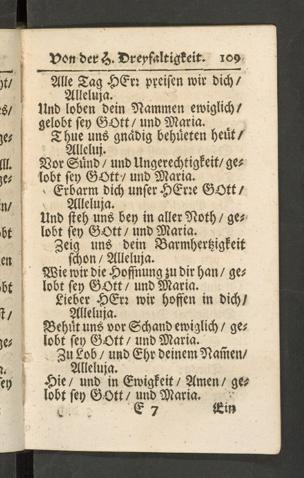 Von der H. Dreyfaltigkeit. 109
Alle Tag HErr preisen wir dich/
Alleluja.
Und loben dein Nammen ewiglich/
gelobt sey GOtt/ und Maria.
Thue uns gnädig behüeten heüt/
Alleluj.
Vor Sünd/ und Ungerechtigkeit/ ge-
lobt sey GOtt/ und Maria.
Erbarm dich unser HErre GOtt/
Alleluja.
Und steh uns bey in aller Noth/ ge-
lobt sey GOtt/ und Maria.
Zeig uns dein Barmhertzigkeit
schon/ Alleluja.
Wie wir die Hoffnung zu dir han/ ge-
lobt sey GOtt/ und Maria.
Lieber HErr wir hoffen in dich/
Alleluja.
Behüt uns vor Schand ewiglich/ ge-
lobt sey GOtt/ und Maria.
Zu Lob/ und Ehr deinem Nam̃en/
Alleluja.
Hie/ und in Ewigkeit/ Amen/ ge-
lobt sey GOtt/ und Maria.
E 7 Ein